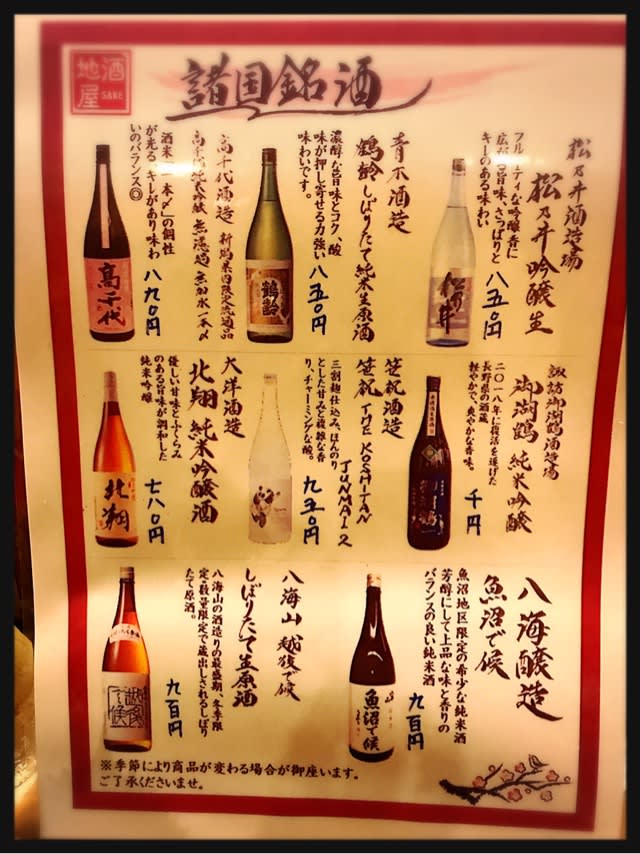 地酒屋
SAKE
諸国銘酒
松乃井酒造場
松乃井吟醸生
フルーティな吟醸香に
広がる旨味、さっぱりと
キレのある味わい
八五〇円
松乃井
青木酒造
鶴齢しぼりたて純米生原酒
濃醇な旨味とコク、酸
味が押し寄せる力強い
味わいです。
八五〇円
鶴齢
高千代酒造 新潟県内限定流通品
高千代純米吟醸 無濾過 無加水一本〆
酒米「一本〆」の個性
が光る キレがあり味わ
いのバランス◎
八九〇円
高千代
諏訪御湖鶴酒造場
御湖鶴 純米吟醸
二〇一八年に復活を遂げた
長野県の酒蔵
軽やかで、爽やかな香味。
千円
笹祝酒造
笹祝 THE KOSHITAN
JUNMAI 2
三割麹仕込み、ほんのり
とした甘みと複雑な香
り、チャーミングな酸。
九五〇円
大洋酒造
北翔 純米吟醸酒
優しい甘味とふくらみ
のある旨味が調和した
純米吟醸
七八〇円
北翔
八海醸造
魚沼で候
魚沼地区限定の希少な純米酒
芳醇にして上品な味と香りの
バランスの良い純米酒
九百円
魚沼で候
八海山 越後で候
しぼりたて生原酒
八海山の酒造りの最盛期、冬季限
定・数量限定で蔵出しされるしぼり
たて原酒。
九百円
越後で候
※季節により商品が変わる場合が御座います。
ご了承くださいませ。